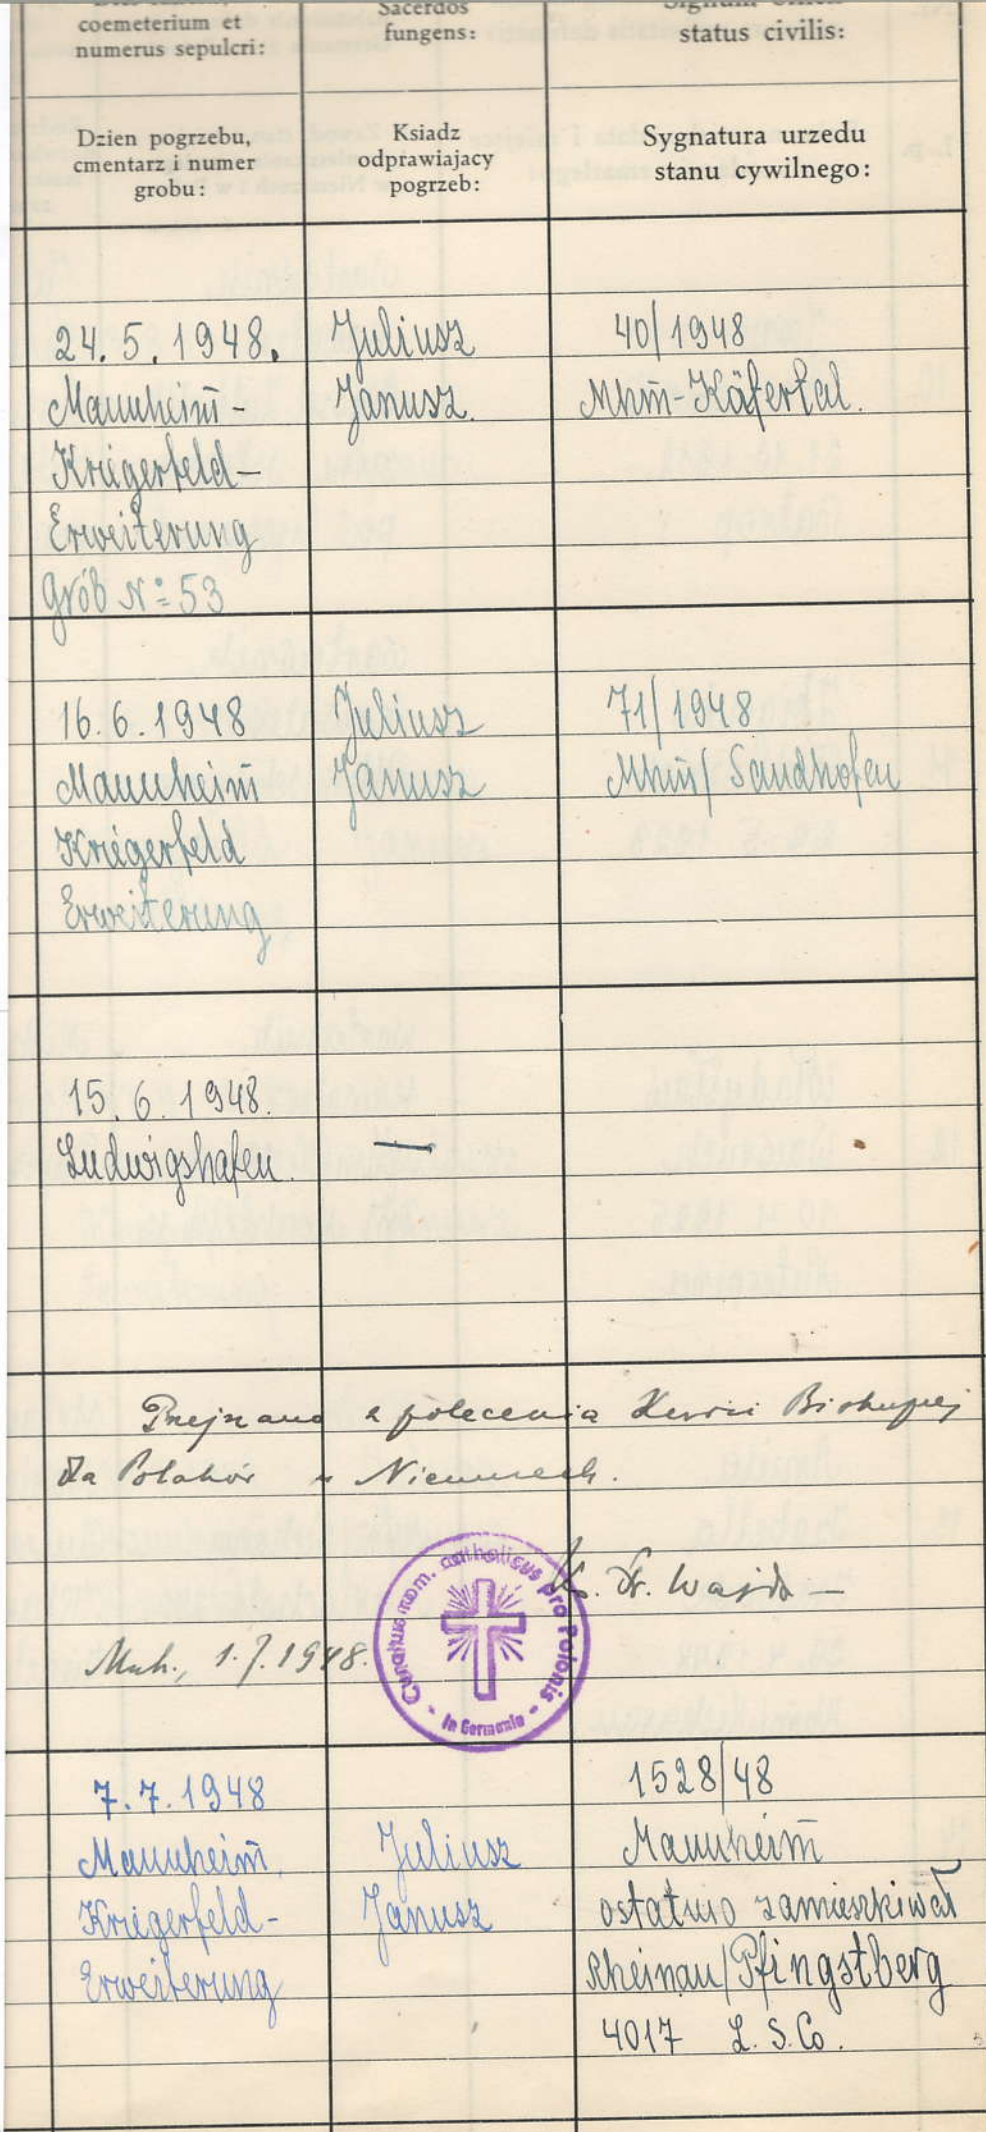 coemeterium et
numerus sepulcri:
Sacerdos
fungens:
status civilis:
Dzien pogrzebu,
cmentarz i numer
grobu:
Ksiadz
odprawiajacy
pogrzeb:
Sygnatura urzedu
stanu cywilnego:
24. 5. 1948.
Mannheim-
Kriegerfeld-
Erweiterung
Grób No 53
Juliusz
Janusz.
40/1948
Mhm-Käfertal.
16. 6. 1948
Mannheim
Kriegerfeld
Erweiterung
Juliusz
Janusz
71/1948
Mhm/ Sandhofen
15. 6. 1948.
Ludwigshafen.
—
Przejrzano z polecenia Kurii Biskupiej
dla Polaków w Niemczech.
Ks. Dr. Wajda —
Mnh., 1.7.1948.
catholicus pro Polonis - in Germania -
7. 7. 1948
Mannheim,
Kriegerfeld-
Erweiterung
Juliusz
Janusz
1528/48
Mannheim
ostatnio zamieszkiwał
Rheinau/Pfingstberg
4017 L. S. Co.